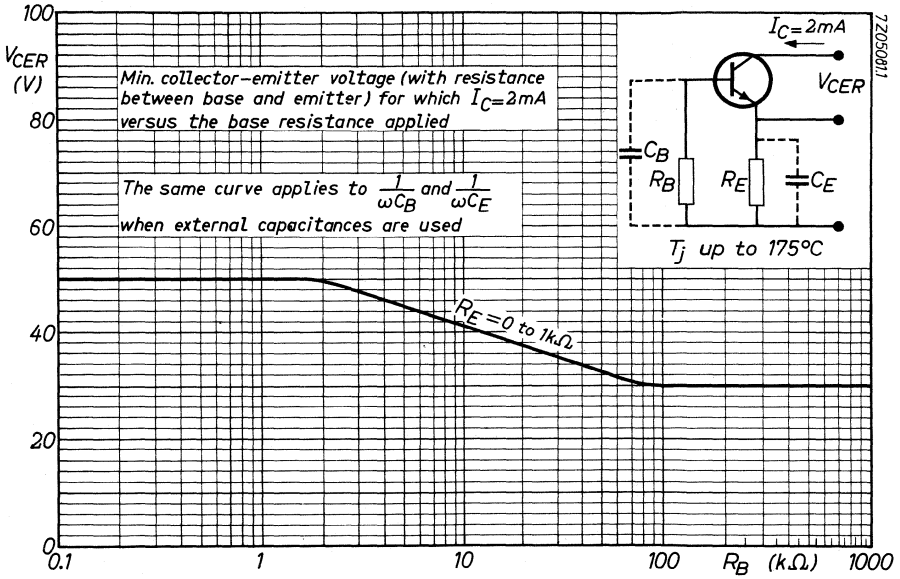 100
V_CER
(V)
80
60
40
20
0
Min. collector-emitter voltage (with resistance
between base and emitter) for which I_C=2mA
versus the base resistance applied
The same curve applies to 1/ωC_B and 1/ωC_E
when external capacitances are used
I_C=2mA
V_CER
C_B
R_B
R_E
C_E
T_j up to 175°C
7Z05081.1
R_E=0 to 1kΩ
0.1
1
10
100
R_B (kΩ)
1000